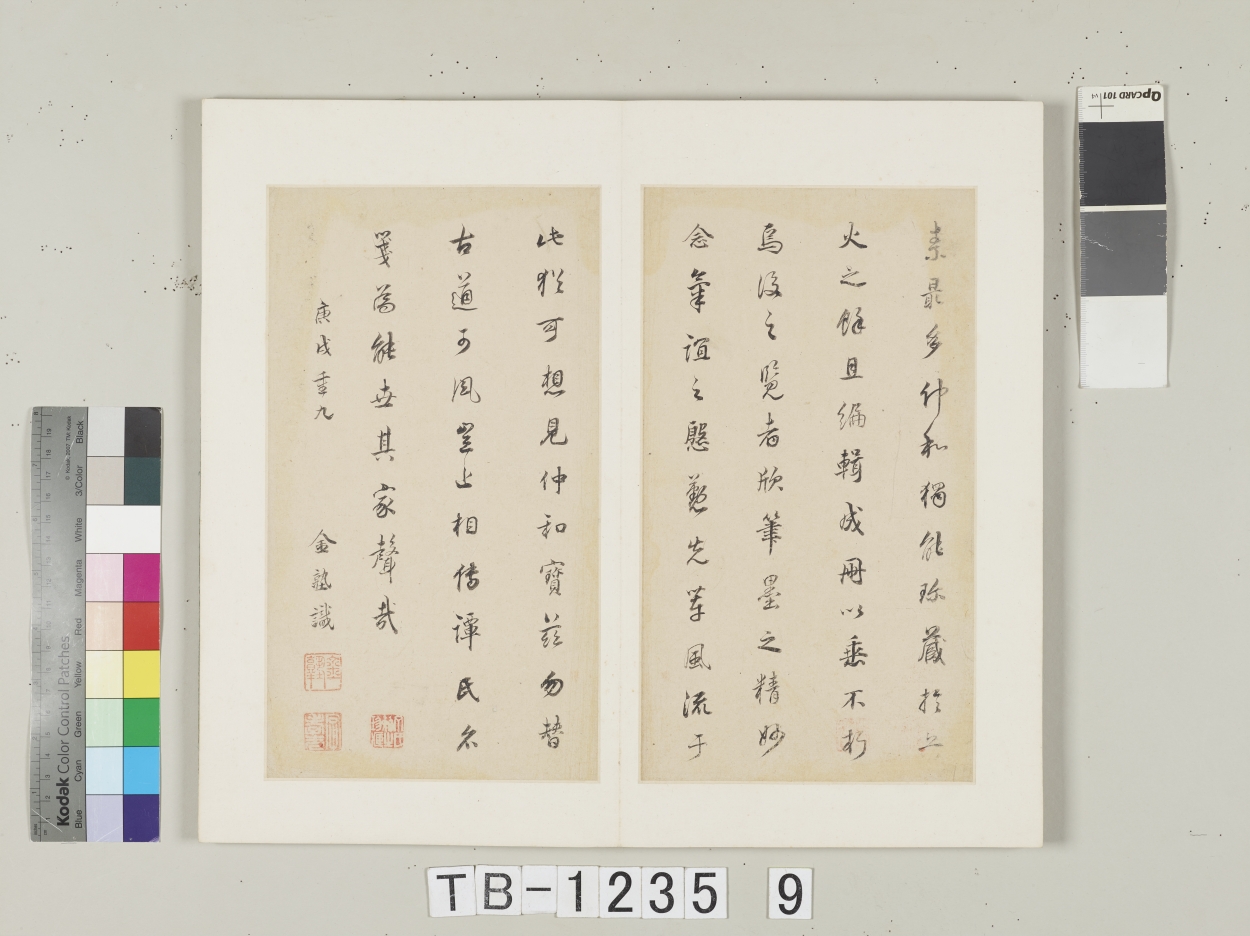 素最多仲和獨能珍藏於兵
火之餘且編輯成冊以垂不朽
焉後之覽者欣筆墨之精妙
念氣誼之慇懃先輩風流于
此猶可想見仲和寶茲勿替
古道可風豈止相傳譚氏衣
箋為能世其家聲哉
庚戌重九
金塾識
QPCARD 101 v4
Kodak Color Control Patches
© Kodak, 2007, TM: Kodak
Blue
Cyan
Green
Yellow
Red
Magenta
White
3/Color
Black
TB-1235 9